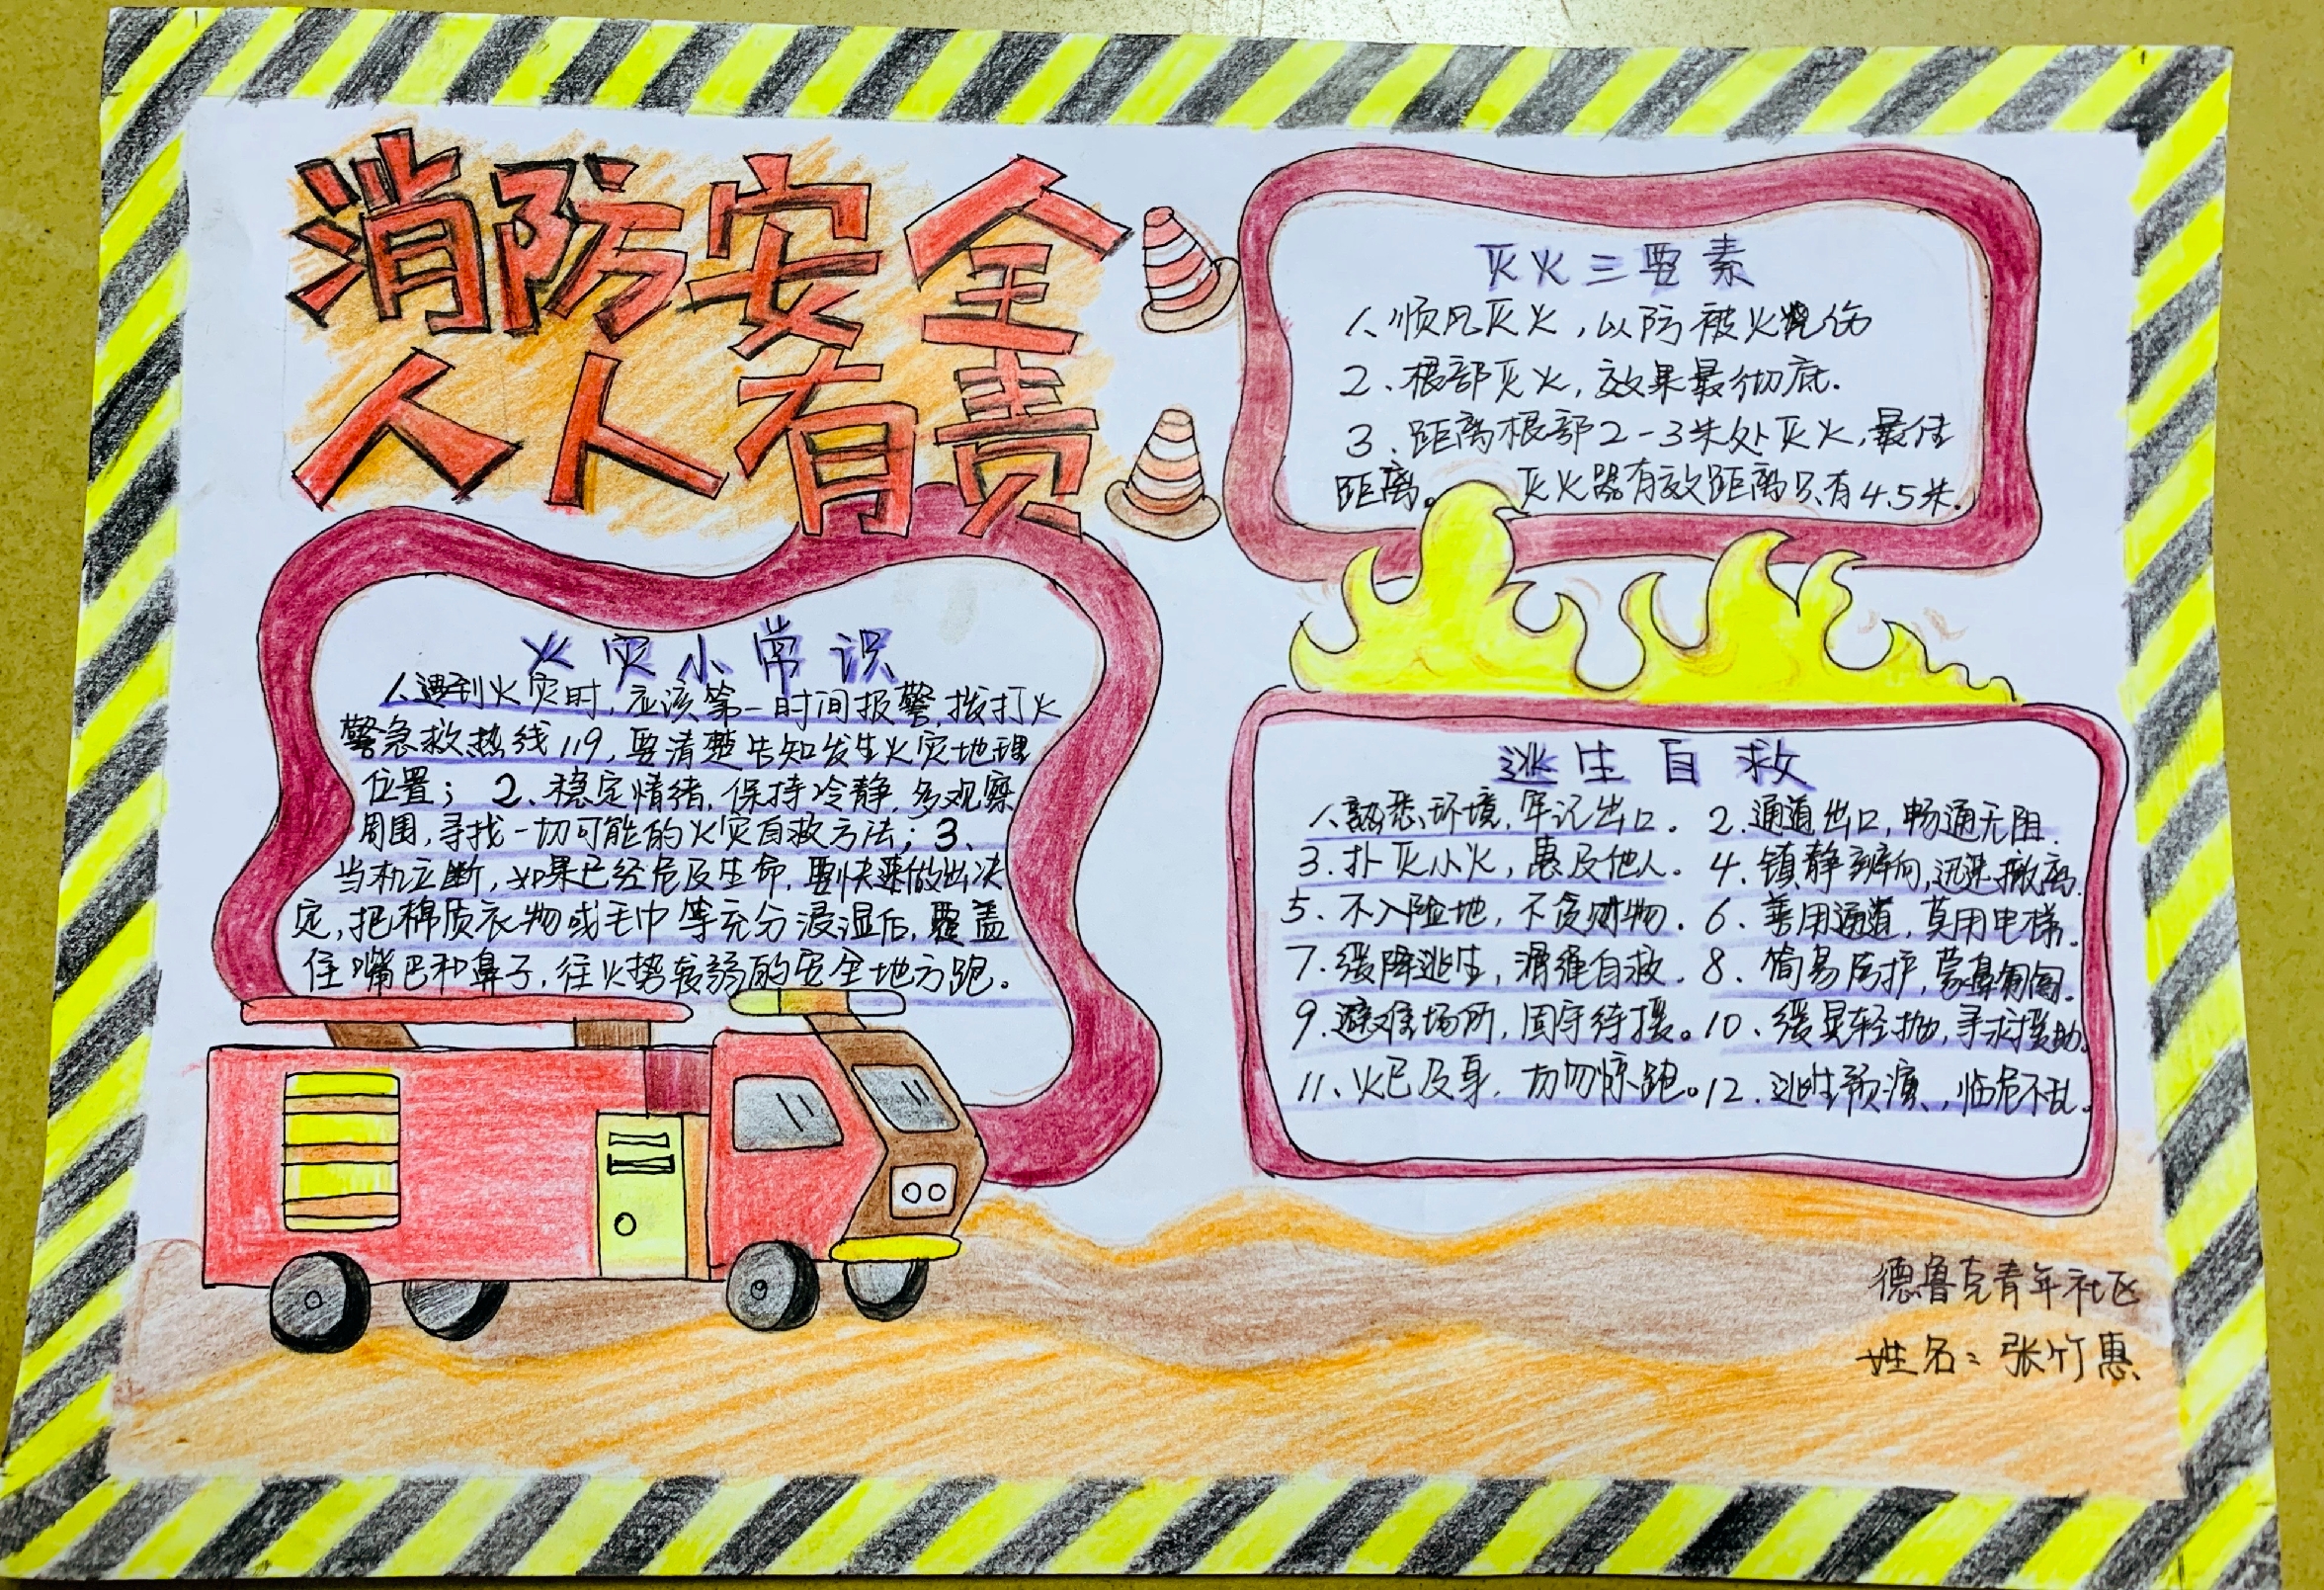 消防安全
人人有责
火灾小常识
1、遇到火灾时,应该第一时间报警,拨打火
警急救热线119,要清楚告知发生火灾地理
位置；2、稳定情绪,保持冷静,多观察
周围,寻找一切可能的火灾自救方法；3、
当机立断,如果已经危及生命,要快速做出决
定,把棉质衣物或毛巾等充分浸湿后,覆盖
住嘴巴和鼻子,往火势较弱的安全地方跑。
灭火三要素
1、顺风灭火,以防被火烧伤
2、根部灭火,效果最彻底.
3、距离根部2-3米处灭火,最佳
距离。灭火器有效距离只有4.5米.
逃生自救
1、熟悉环境,牢记出口。2、通道出口,畅通无阻.
3、扑灭小火,惠及他人。4、镇静辨向,迅速撤离.
5、不入险地,不贪财物。6、善用通道,莫用电梯。
7、缓降逃生,滑绳自救.8、简易防护,蒙鼻匍匐.
9、避难场所,固守待援。10、缓晃轻抛,寻求援助.
11、火已及身,切勿惊跑。12、逃生预演,临危不乱。
德鲁克青年社区
姓名：张竹惠